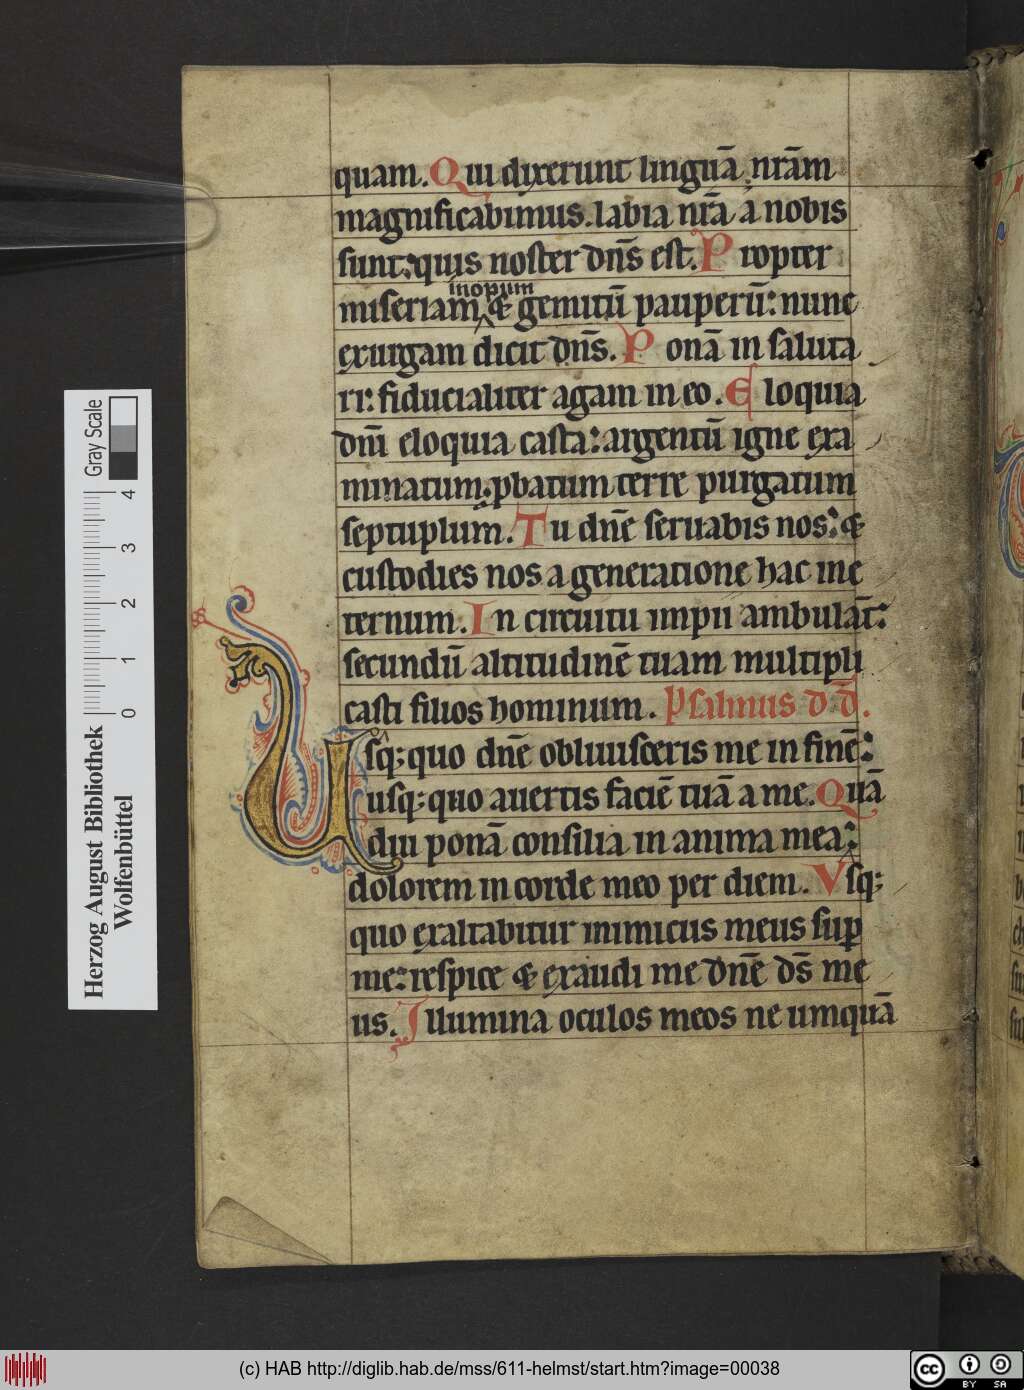 quam. Qui dixerunt linguā nrām
magnificabimus. labia nrā a nobis
sunt: quis noster dn̄s est. Propter
inopum
miseriam & gemitū pauperū: nunc
exurgam dicit dn̄s. Ponā in saluta
ri: fiducialiter agam in eo. Eloquia
dn̄i eloquia casta: argentū igne exa
minatum: ꝓbatum terre purgatum
septuplum. Tu dn̄e seruabis nos: &
custodies nos a generatione hac in e
ternum. In circuitu impii ambulāt:
secundū altitudinē tuam multipli
casti filios hominum. Psalmus d̄d̄.
Usq; quo dn̄e obliuisceris me in finē:
usq; quo auertis faciē tuā a me. Quā
diu ponā consilia in anima mea:
dolorem in corde meo per diem. Vsq;
quo exaltabitur inimicus meus suꝑ
me: respice & exaudi me dn̄e ds̄ me
us. Illumina oculos meos ne umquā
Herzog August Bibliothek
Wolfenbüttel
Gray Scale
0 1 2 3 4
(c) HAB http://diglib.hab.de/mss/611-helmst/start.htm?image=00038
cc BY SA